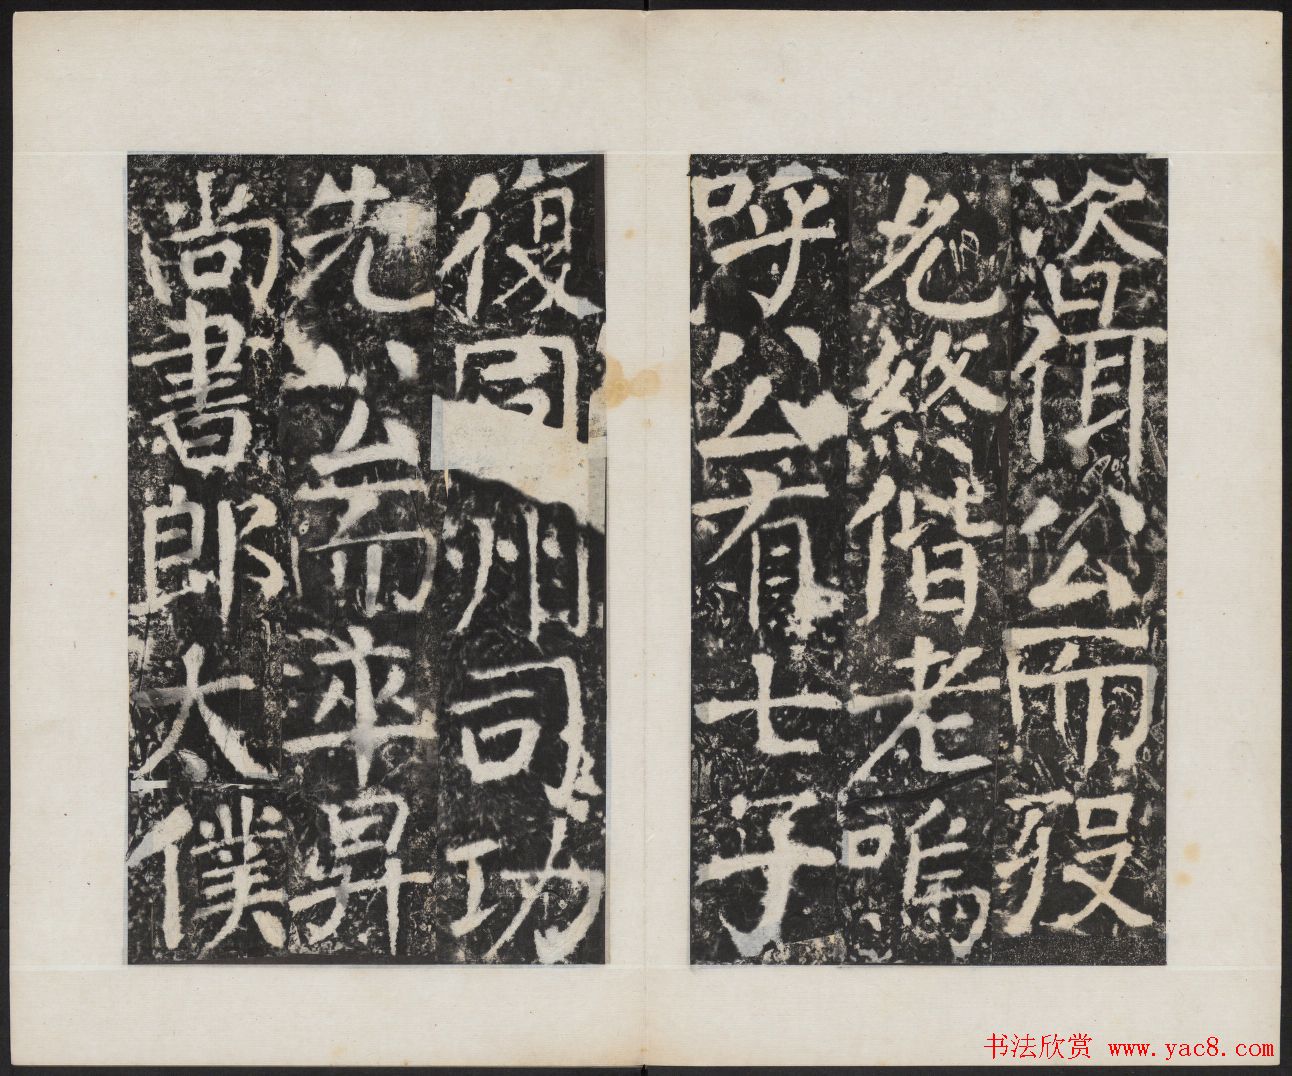 公而歿
允終偕老嗚
呼公有七子
復同州司功
先公而卒昇
尚書郎太僕
书法欣赏 www.yac8.com